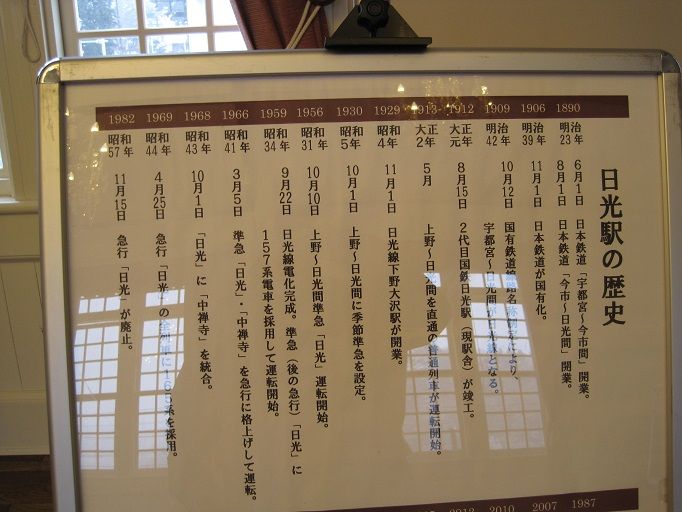 日光駅の歴史
1890
明治23年
6月1日 日本鉄道「宇都宮〜今市間」開業。
8月1日 日本鉄道「今市〜日光間」開業。
1906
明治39年
11月1日 日本鉄道が国有化。
1909
明治42年
10月12日 国有鉄道線路名称制定により、
宇都宮〜日光間が日光線となる。
1912
大正元年
8月15日 2代目国鉄日光駅（現駅舎）が竣工。
1913
大正2年
5月 上野〜日光間を直通の普通列車が運転開始。
1929
昭和4年
11月1日 日光線下野大沢駅が開業。
1930
昭和5年
10月1日 上野〜日光間に季節準急を設定。
1956
昭和31年
10月10日 上野〜日光間準急「日光」運転開始。
1959
昭和34年
9月22日 日光線電化完成。準急（後の急行）「日光」に
157系電車を採用して運転開始。
1966
昭和41年
3月5日 準急「日光」・「中禅寺」を急行に格上げして運転。
1968
昭和43年
10月1日 「日光」に「中禅寺」を統合。
1969
昭和44年
4月25日 急行「日光」の全列車に165系を採用。
1982
昭和57年
11月15日 急行「日光」が廃止。
1987
2007
2010